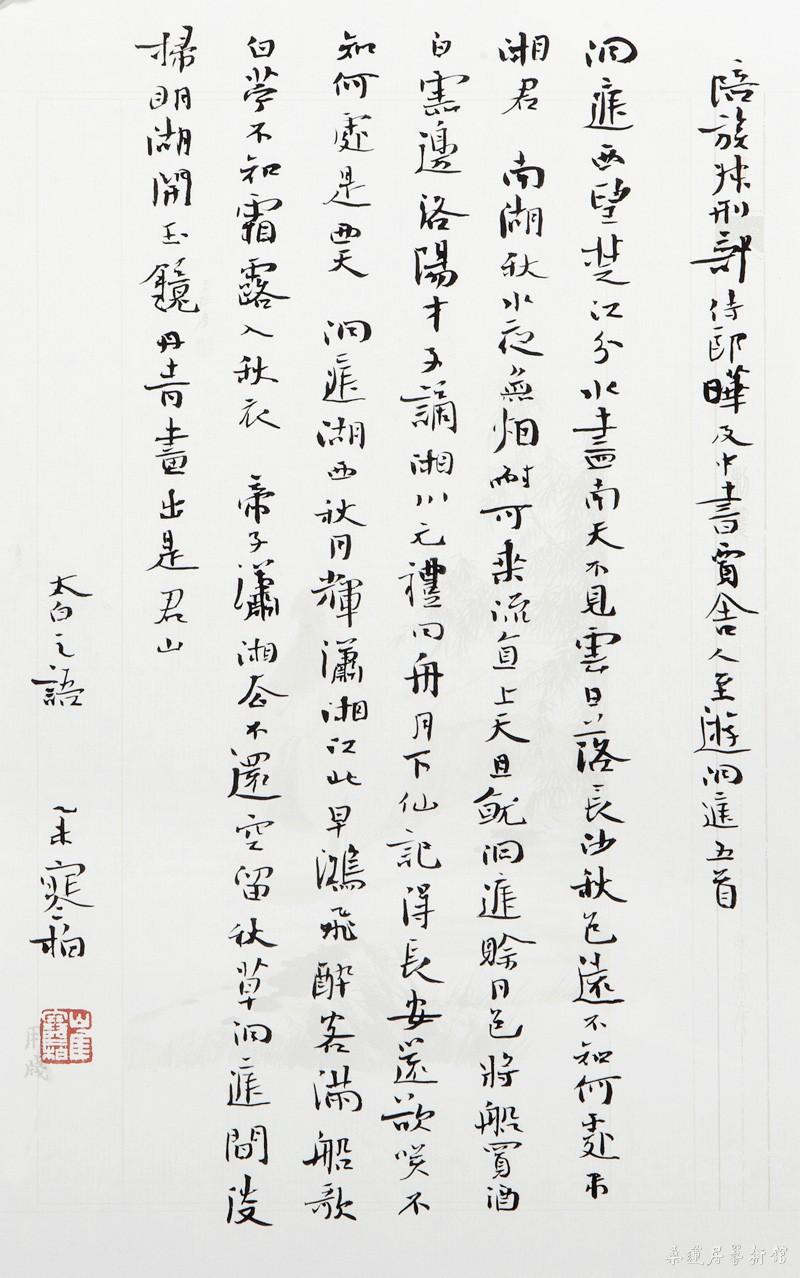 陪族叔刑部侍郎曄及中書賈舍人至遊洞庭五首
洞庭西望楚江分水盡南天不見雲日落長沙秋色遠不知何處弔
湘君　南湖秋水夜無烟耐可乘流直上天且就洞庭賒月色將船買酒
白雲邊洛陽才子謫湘川元禮同舟月下仙記得長安還欲咲不
知何處是西天　洞庭湖西秋月輝瀟湘江北早鴻飛醉客滿船歌
白苧不知霜露入秋衣　帝子瀟湘去不還空留秋草洞庭間淡
掃明湖開玉鏡丹青畫出是君山
太白之語　崔寒柏
崔寒柏
桑蓮居藝術館